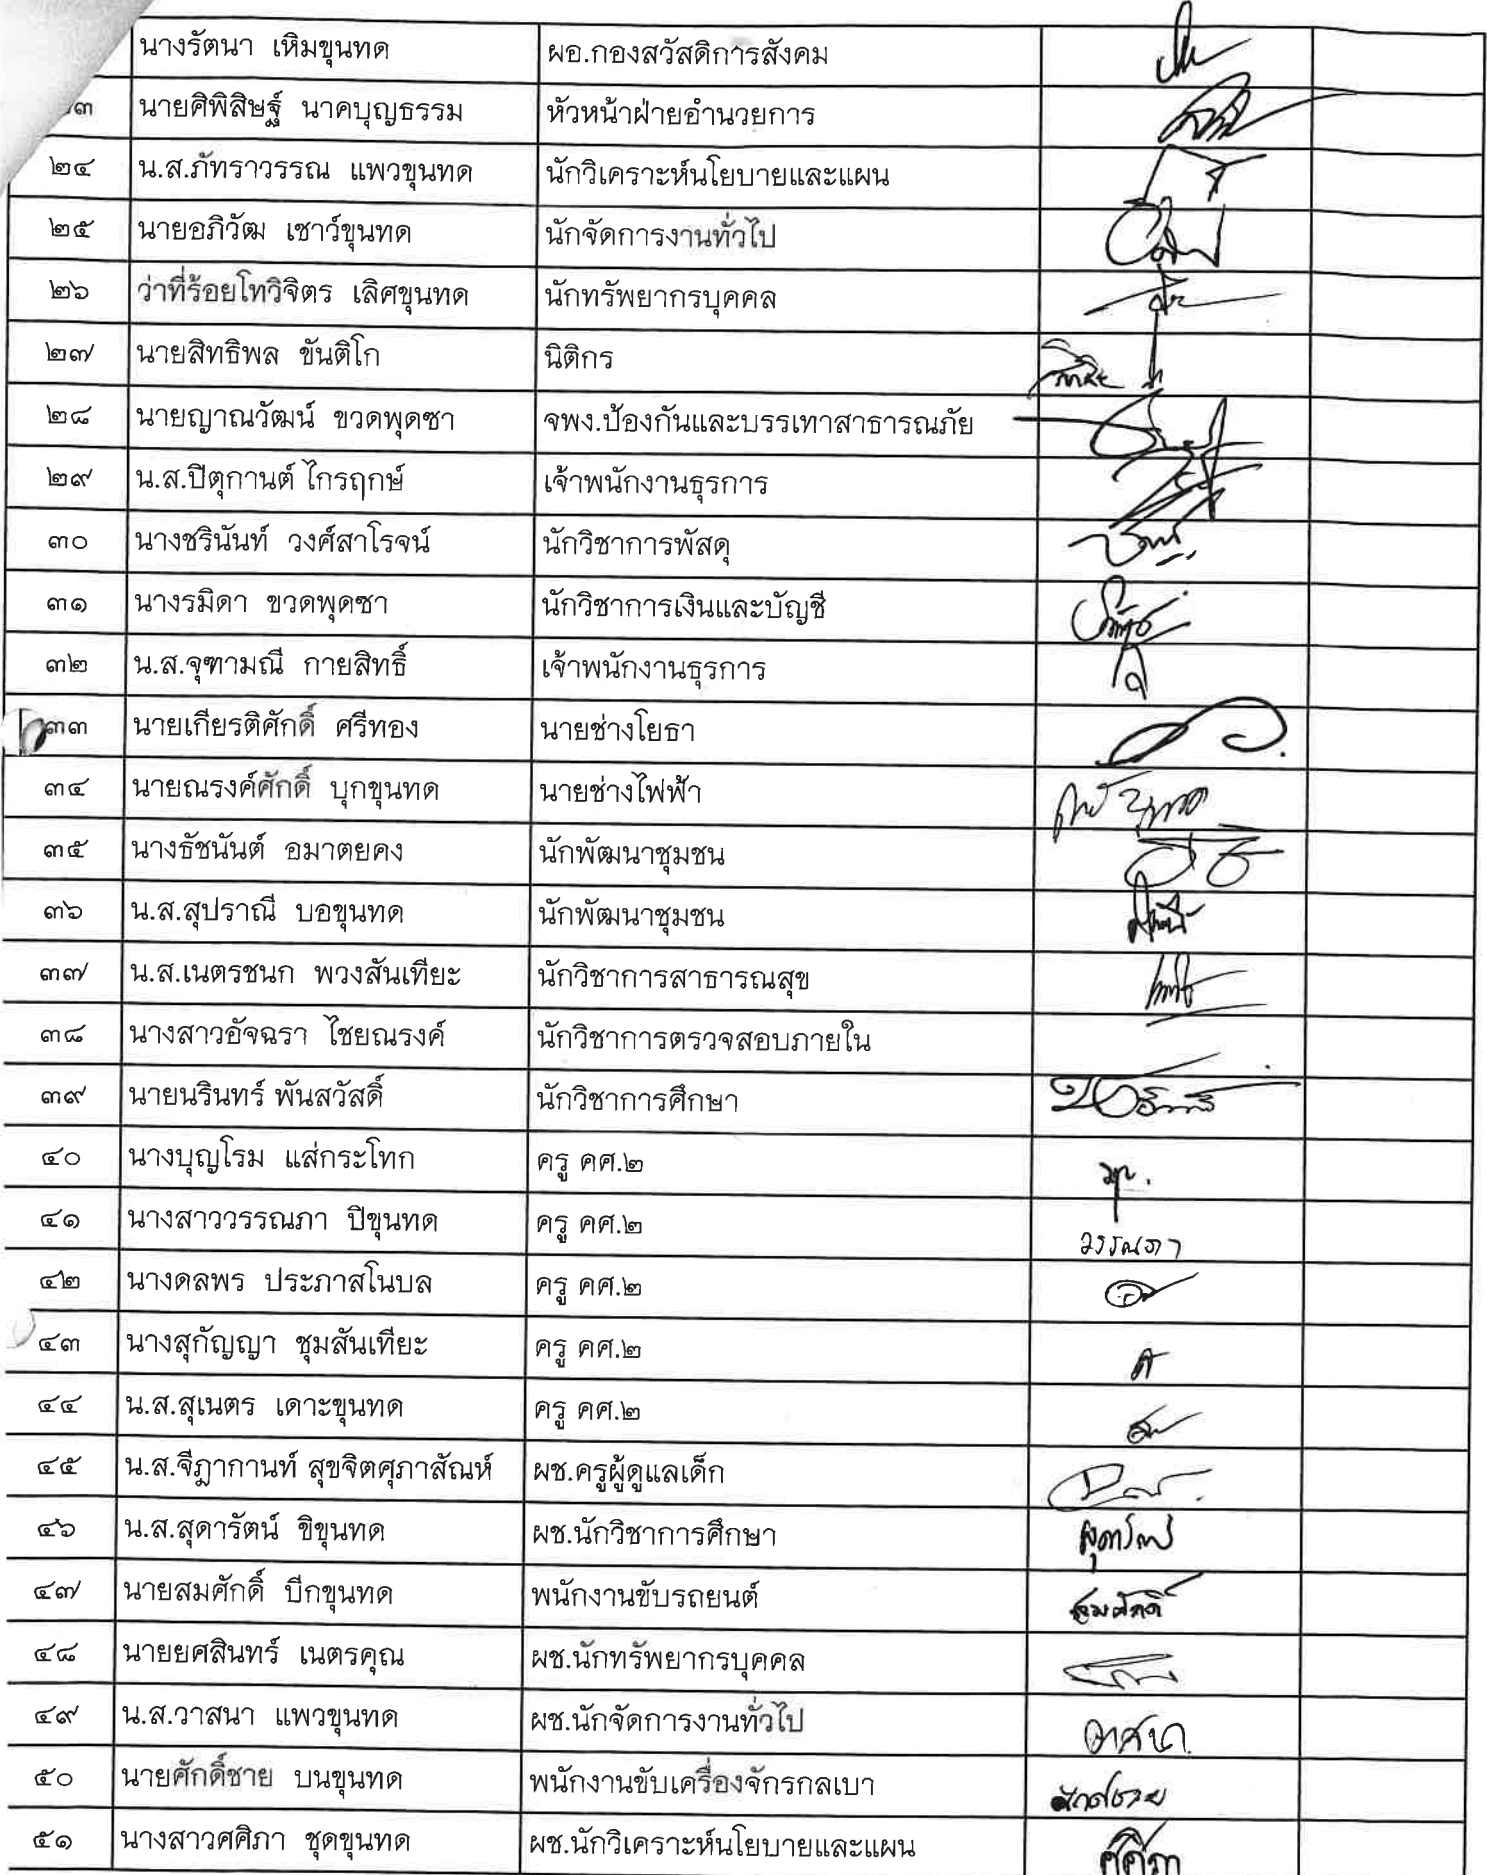 นางรัตนา เหิมขุนทด ผอ.กองสวัสดิการสังคม
๓ นายศิพิสิษฐ์ นาคบุญธรรม หัวหน้าฝ่ายอำนวยการ
๒๔ น.ส.ภัทราวรรณ แพวขุนทด นักวิเคราะห์นโยบายและแผน
๒๕ นายอภิวัฒ เชาว์ขุนทด นักจัดการงานทั่วไป
๒๖ ว่าที่ร้อยโทวิจิตร เลิศขุนทด นักทรัพยากรบุคคล
๒๗ นายสิทธิพล ขันติโก นิติกร
๒๘ นายญาณวัฒน์ ขวดพุดซา จพง.ป้องกันและบรรเทาสาธารณภัย
๒๙ น.ส.ปิตุกานต์ ไกรฤกษ์ เจ้าพนักงานธุรการ
๓๐ นางชรินันท์ วงศ์สาโรจน์ นักวิชาการพัสดุ
๓๑ นางรมิดา ขวดพุดซา นักวิชาการเงินและบัญชี
๓๒ น.ส.จุฑามณี กายสิทธิ์ เจ้าพนักงานธุรการ
๓๓ นายเกียรติศักดิ์ ศรีทอง นายช่างโยธา
๓๔ นายณรงค์ศักดิ์ บุกขุนทด นายช่างไฟฟ้า
๓๕ นางธัชนันต์ อมาตยคง นักพัฒนาชุมชน
๓๖ น.ส.สุปราณี บอขุนทด นักพัฒนาชุมชน
๓๗ น.ส.เนตรชนก พวงสันเทียะ นักวิชาการสาธารณสุข
๓๘ นางสาวอัจฉรา ไชยณรงค์ นักวิชาการตรวจสอบภายใน
๓๙ นายนรินทร์ พันสวัสดิ์ นักวิชาการศึกษา
๔๐ นางบุญโรม แส่กระโทก ครู คศ.๒
๔๑ นางสาววรรณภา ปีขุนทด ครู คศ.๒ วรรณภา
๔๒ นางดลพร ประภาสโนบล ครู คศ.๒
๔๓ นางสุกัญญา ชุมสันเทียะ ครู คศ.๒
๔๔ น.ส.สุเนตร เดาะขุนทด ครู คศ.๒
๔๕ น.ส.จีฎากานท์ สุขจิตศุภาสัณห์ ผช.ครูผู้ดูแลเด็ก
๔๖ น.ส.สุดารัตน์ ขิขุนทด ผช.นักวิชาการศึกษา สุดารัตน์
๔๗ นายสมศักดิ์ บีกขุนทด พนักงานขับรถยนต์ สมศักดิ์
๔๘ นายยศสินทร์ เนตรคุณ ผช.นักทรัพยากรบุคคล
๔๙ น.ส.วาสนา แพวขุนทด ผช.นักจัดการงานทั่วไป วาสนา
๕๐ นายศักดิ์ชาย บนขุนทด พนักงานขับเครื่องจักรกลเบา ศักดิ์ชาย
๕๑ นางสาวศศิภา ชุดขุนทด ผช.นักวิเคราะห์นโยบายและแผน ศศิภา